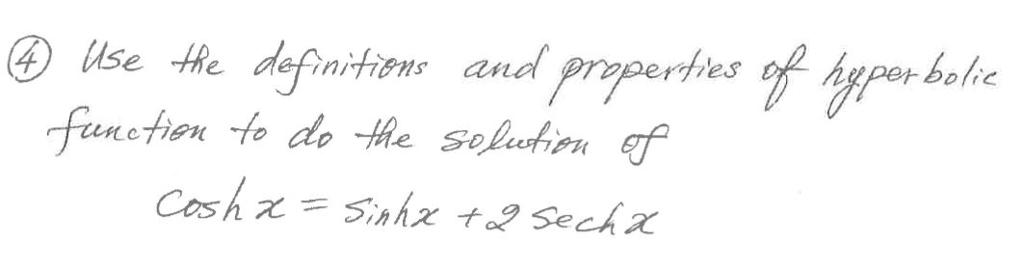 ④ Use the definitions and properties of hyperbolic
function to do the solution of
cosh x = sinhx + 2 sech x